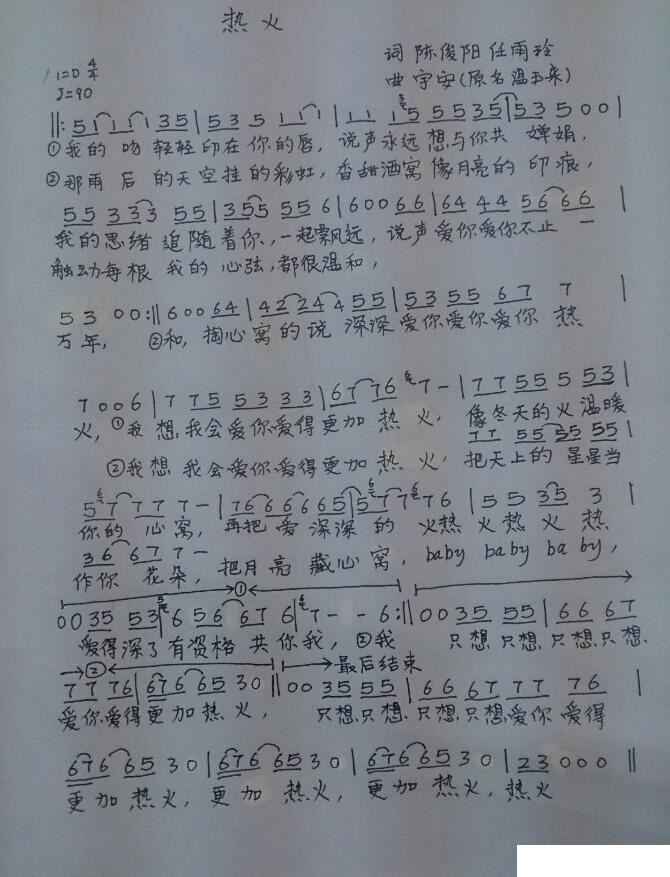 热火
词 陈俊阳 任雨玲
1=D 4/4
曲 宇安(原名温玉来)
J=90
‖: 5 1 1 1 3 5 | 5 3 5 1 1 | 1 1 1 5 5 5 3 5 | 5 3 5 0 0 |
①我的 吻 轻轻 印在 你的唇, 说声永远 想与你共 婵娟,
②那雨 后 的天空挂的彩虹, 香甜酒窝 像月亮的 印痕,
5 5 3 3 3 5 5 | 3 5 5 5 5 6 | 6 0 0 6 6 | 6 4 4 4 5 6 6 6 |
我的思绪 追随着你,一起飘远, 说声爱你爱你不止 一
触动每根 我的 心弦,都很温和,
5 3 0 0 :‖ 6 0 0 6 4 | 4 2 2 4 4 5 5 | 5 3 5 5 6 7 7 |
万年, ②和, 掏心窝的说 深深 爱你爱你爱你 热
7 0 0 6 | 7 7 5 5 3 3 3 | 6 7 7 6 7 - | 7 7 5 5 5 5 3 |
火, ①我 想,我会爱你爱得更加 热 火, 像冬天的火温暖
7 7 5 5 3 5 5 5 |
②我想 我会爱你爱得更加热 火, 把天上的 星星当
5 7 7 7 7 - | 7 6 6 6 6 6 5 | 5 7 7 7 6 | 5 5 3 5 3 |
你的 心窝, 再把 爱 深深 的 火热 火热 火 热
3 6 6 7 7 -
作你 花朵, 把月亮 藏心窝, baby baby ba by,
①
0 0 3 5 5 3 | 6 5 6 6 7 6 | 7 - - 6 :‖ 0 0 3 5 5 5 | 6 6 6 7
爱得深了有资格 共你我, ②我 只想,只想,只想,只想,
② 最后结束
7 7 7 6 | 6 7 6 6 5 3 0 ‖ 0 0 3 5 5 5 | 6 6 6 7 7 7 7 6 |
爱你爱得更加热火, 只想,只想,只想,只想爱你 爱得
6 7 6 6 5 3 0 | 6 7 6 6 5 3 0 | 6 7 6 6 5 3 0 | 2 3 0 0 0 ‖
更加热火, 更加 热火, 更加 热火, 热火